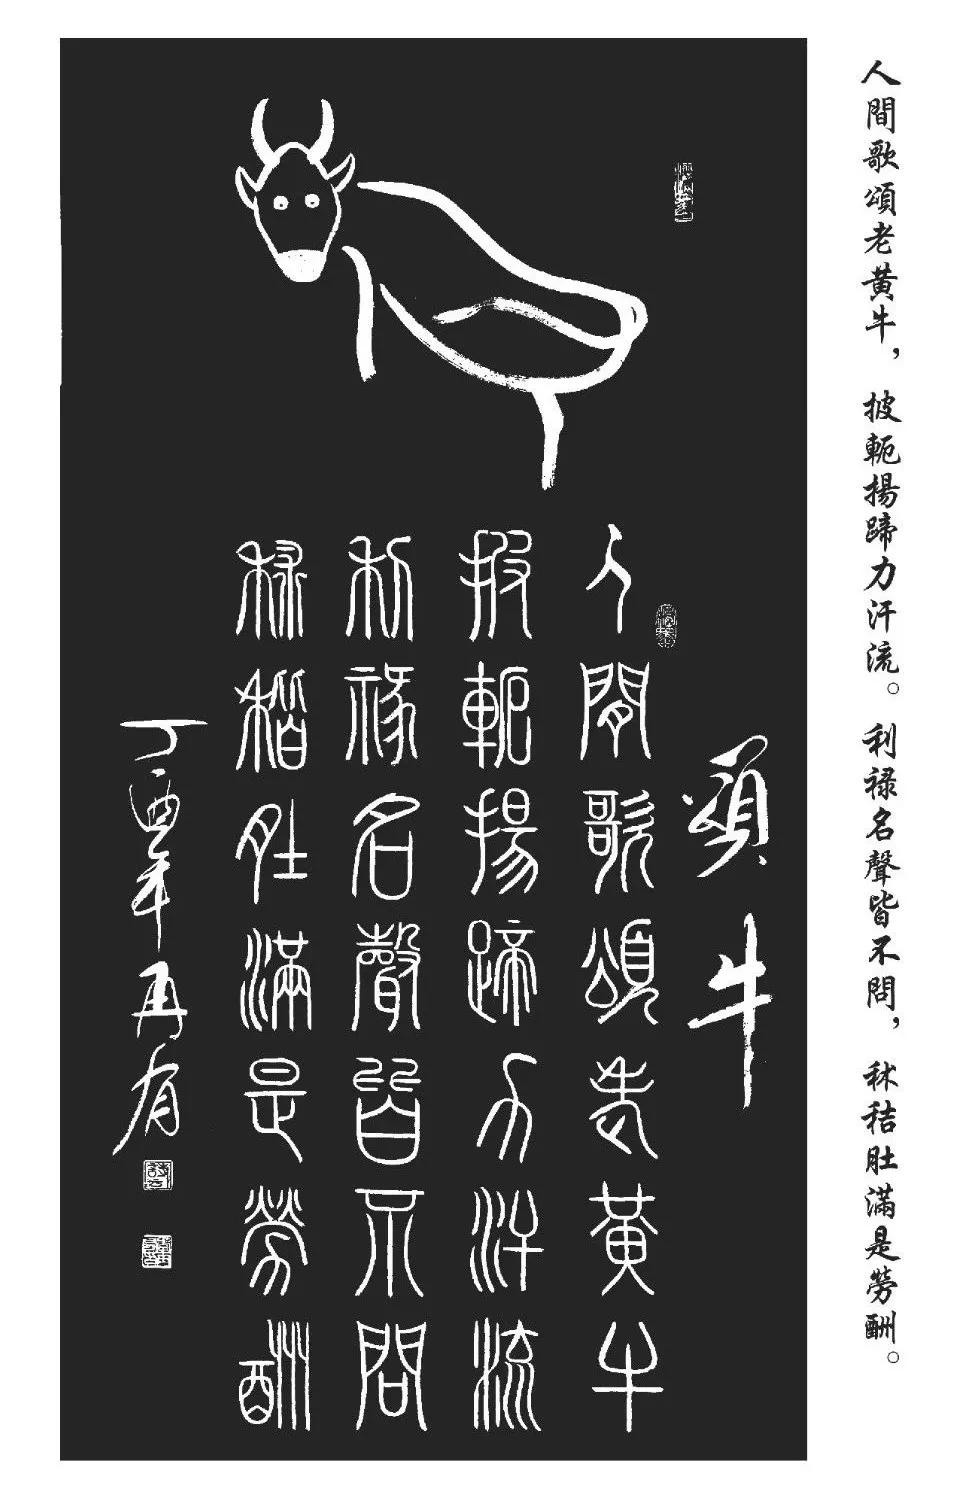 人間歌頌老黃牛，披軛揚蹄力汗流。利祿名聲皆不問，秣秸肚滿是勞酬。
頌牛
人間歌頌老黃牛
披軛揚蹄力汗流
利祿名聲皆不問
秣稭肚滿是勞酬
丁酉年再有